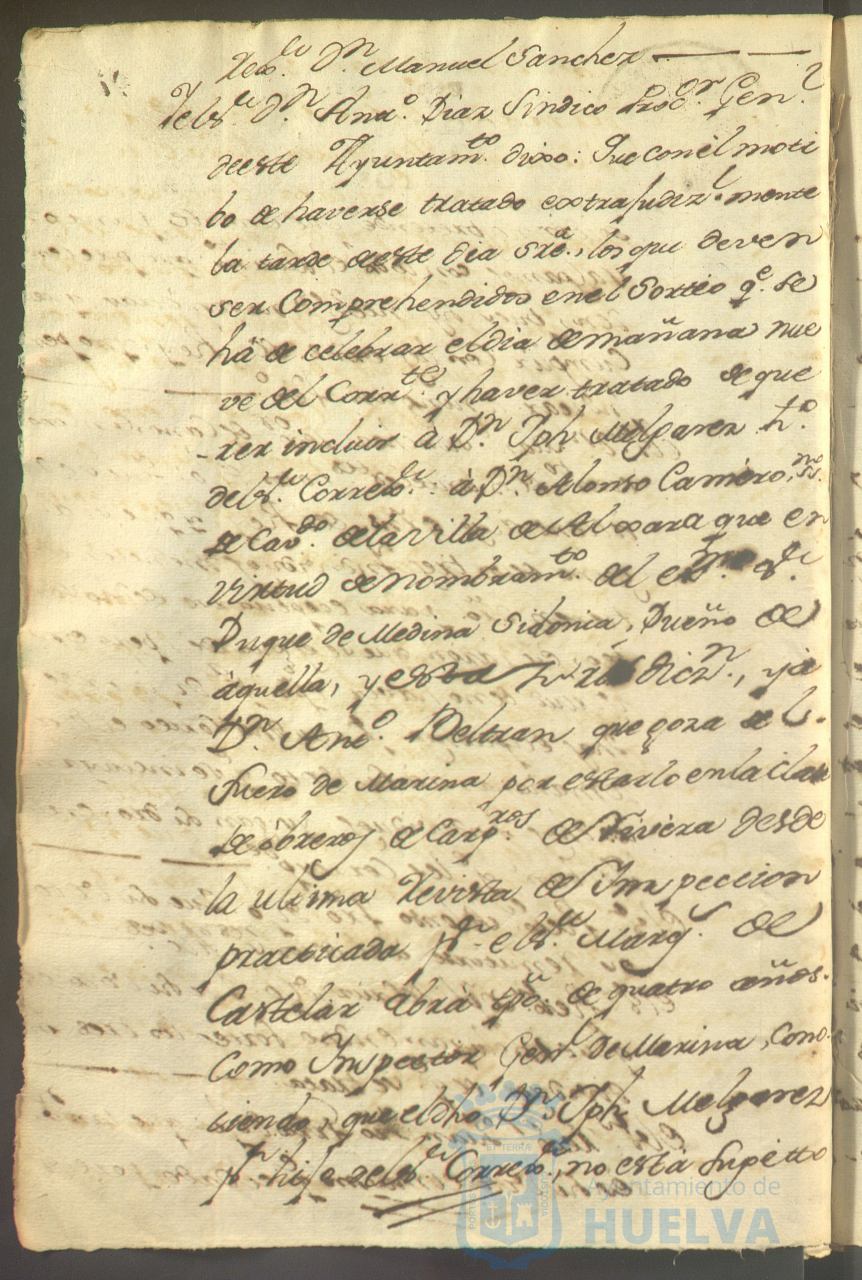 Dn Manuel Sanchez
Dn Anto. Diaz Sindico Procor Genl
de este Ayuntamto. dixo: Que con el moti
bo de haverse tratado extrajudizl.mente
la tarde de este dia sre., los que deven
ser Comprehendidos en el Sorteo qe. se
há de celebrar el dia de mañana nue
ve del Corrte. y haver tratado de que
rer incluir à Dn Jph Melgarez ho.
del Sr. Correxor. à Dn. Alonso Camero,
de Cavdo. de la villa de Aljaraque en
virtud de nombramto. del Sr.
Duque de Medina Sidonia, Dueño de
àquella, y dicn., y à
Dn Anto. Beltran que goza del
fuero de Marina por estarlo en la clase
de obreros de Carpros de Rivera desde
la ultima Revista de Inspeccion
practicada pr el Sr. Marqs. de
Castelar abrà tpo. de quatro años.
Como Inspector Genl. de Marina, cono
ciendo, que el dho Dn Jph Melgarez
pr hijo del Sr Correxor., no està sugetto
Ayuntamiento de
HUELVA